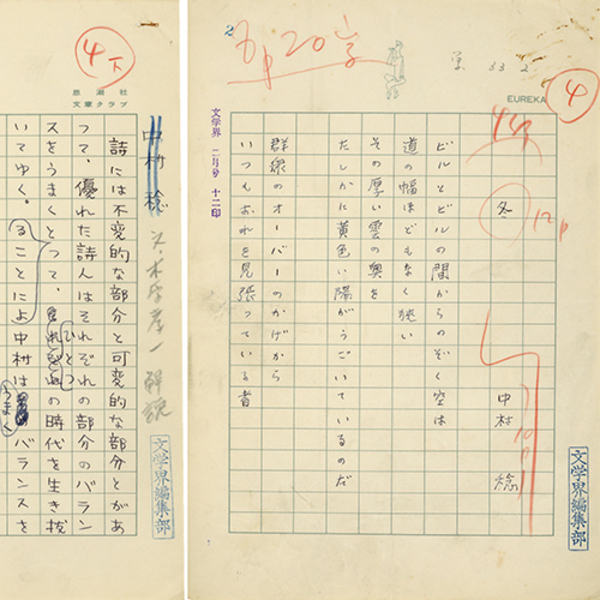 2
5p20字
33 2
EUREKA
4
冬
12p
中村 稔
文学界編集部
ビルとビルの間からのぞく空は
道の幅ほどもなく狭い
その厚い雲の奥を
たしかに黄色い陽がうごいているのだ
群衆のオーバーのかげから
いつもおれを見張っている者
文学界 二月号 十二印
4下
思潮社
文章クラブ
中村 稔
解説
文学界編集部
詩には不変的な部分と可変的な部分とがあ
って、優れた詩人はそれぞれの部分のバラン
スをうまくとって、ひとつの時代を生き抜
いてゆく。ることによ中村はうまくバランスを